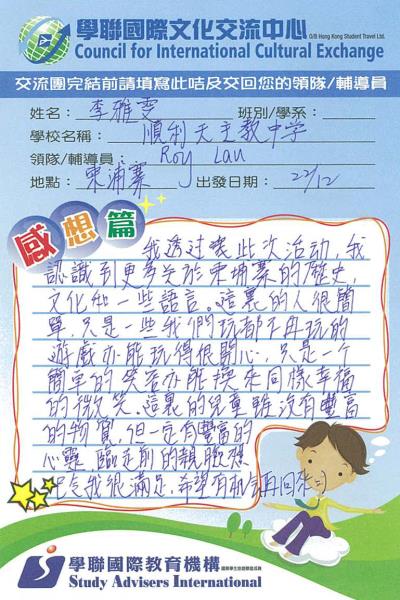 學聯國際文化交流中心 O/B Hong Kong Student Travel Ltd.
Council for International Cultural Exchange
交流團完結前請填寫此咭及交回您的領隊/輔導員
姓名：李雅雯 班別/學系：
學校名稱：順利天主教中学
領隊/輔導員：Roy Lau
地點：柬浦寨 出發日期：22/12
感想篇
我透过此次活动，我
認識到更多关於柬埔寨的歷史，
文化和一些語言。這裏的人很簡
單，只是一些我們玩都不再玩的
遊戲亦能玩得很開心，只是一个
簡單的笑容亦能換來同樣幸福
的微笑。這裏的兒童雖沒有豐富
的物質，但一定有豐富的
心靈，臨走前的親臉礫
紀念我很滿足，希望有机会再回來：)
學聯國際教育機構
Study Advisers International